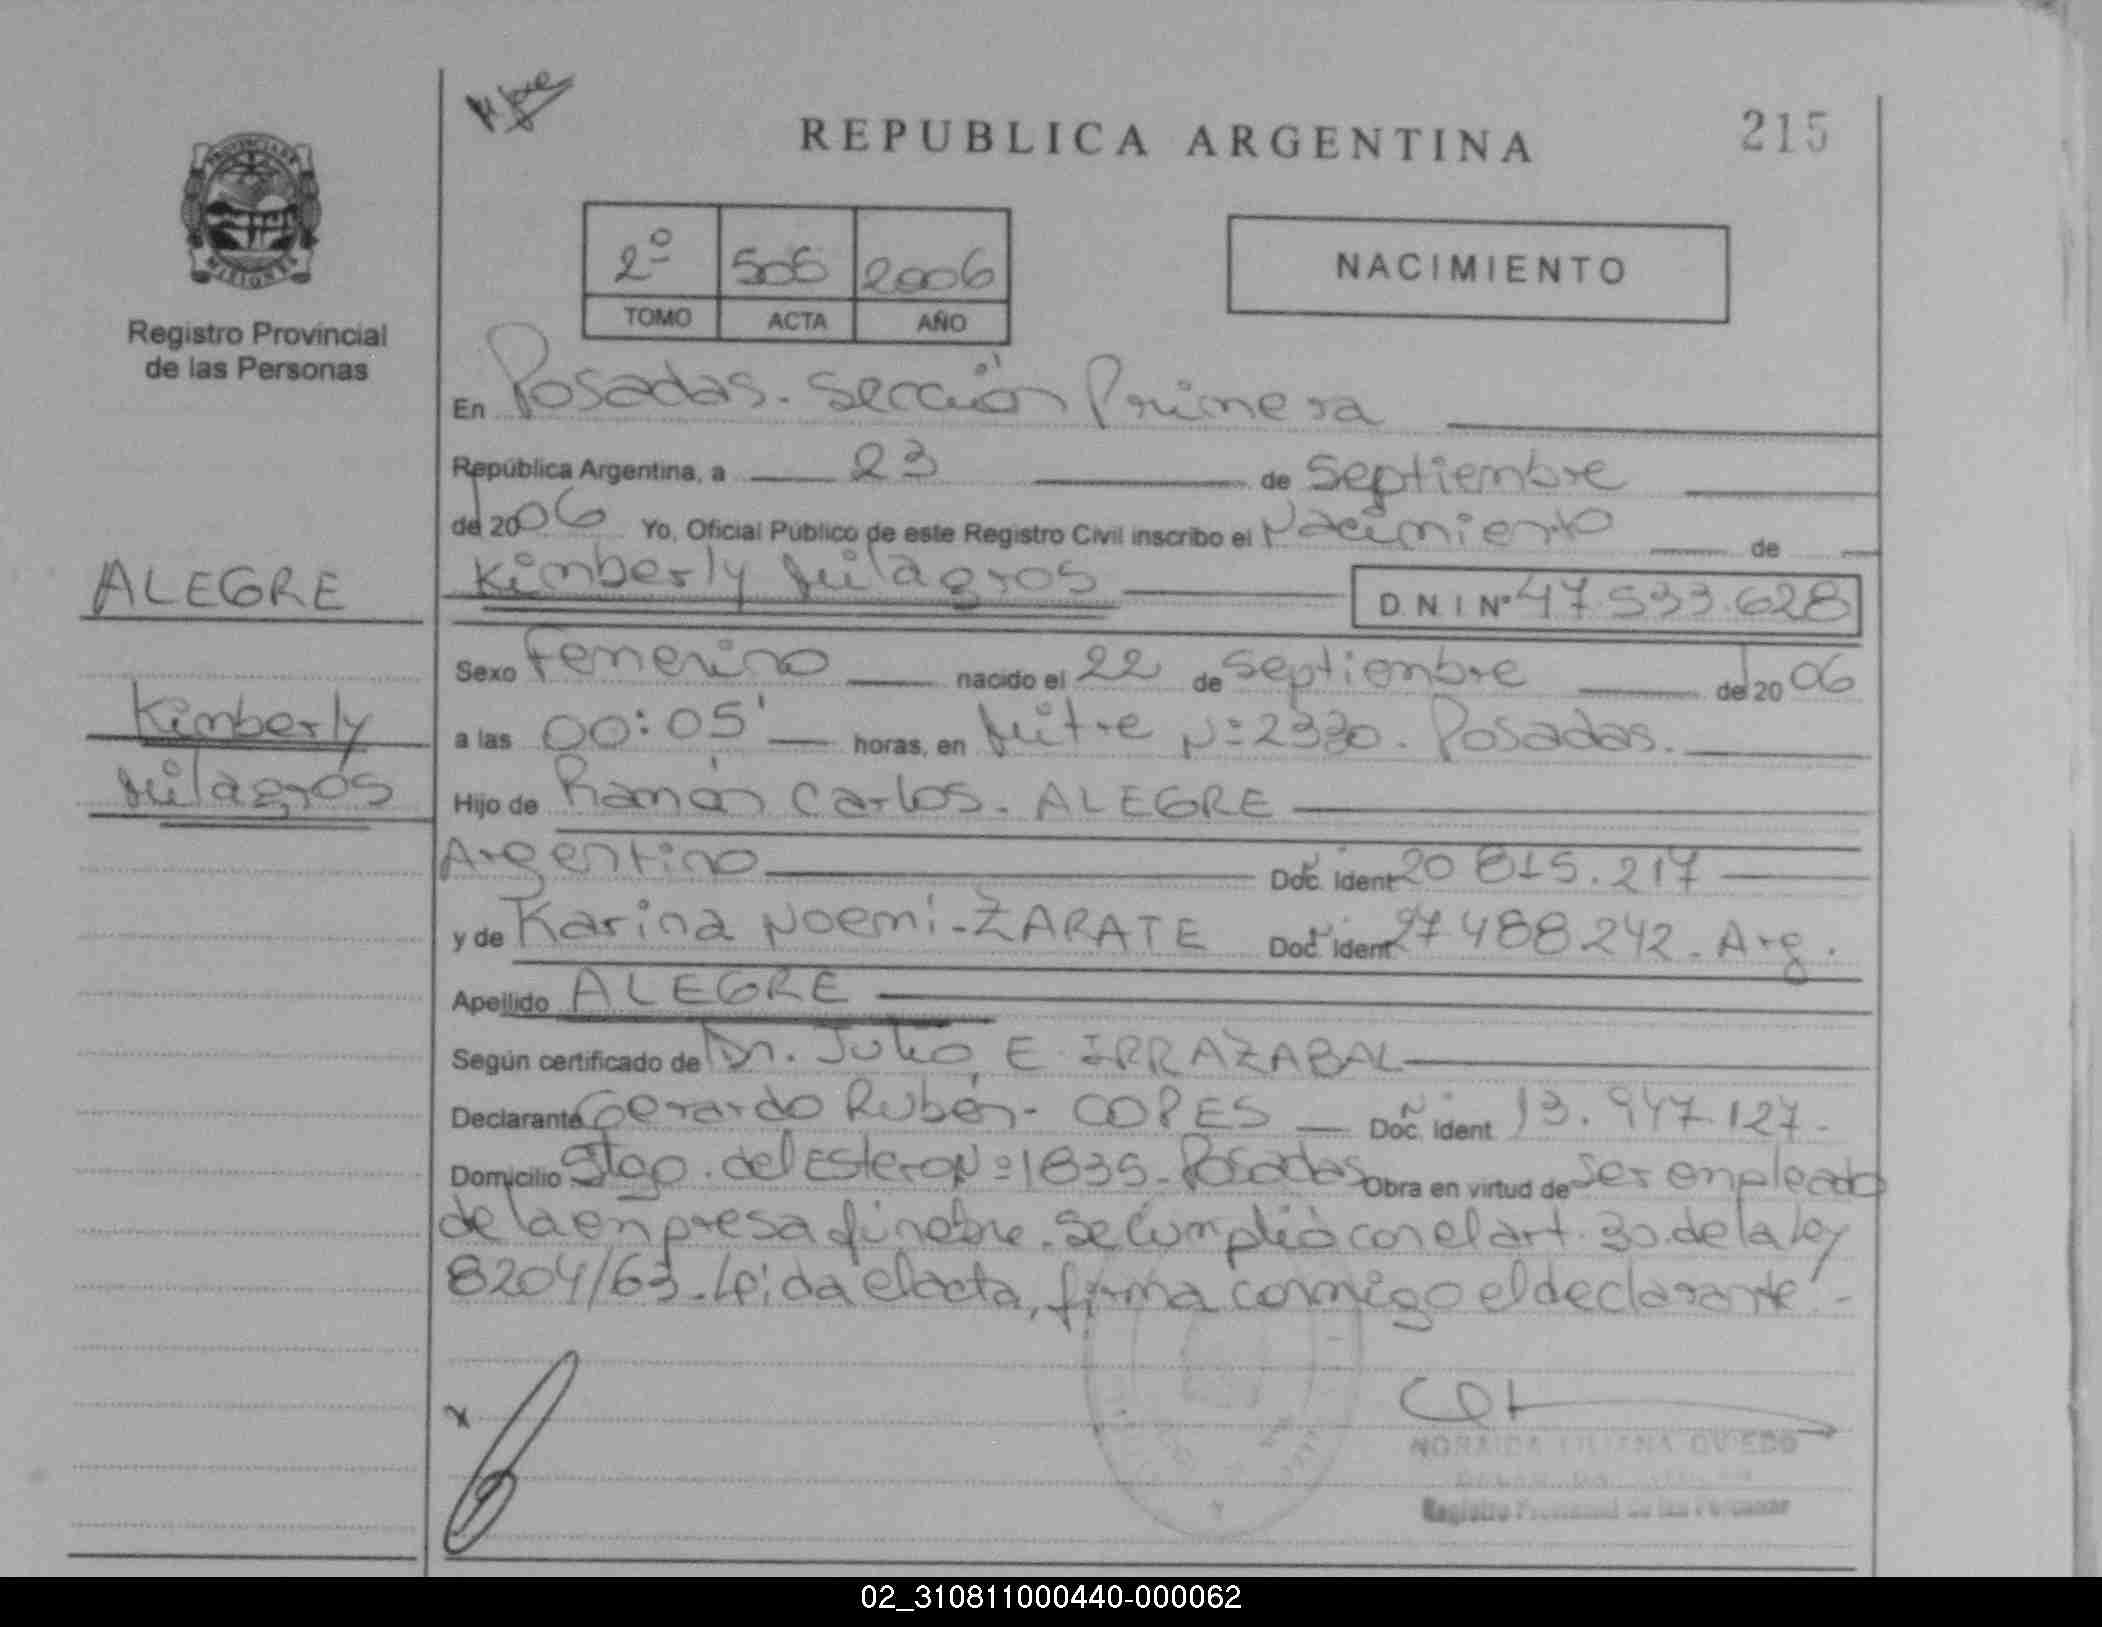 215
REPUBLICA ARGENTINA
PROVINCIA DE
MISIONES
Registro Provincial
de las Personas
2º 506 2006
TOMO ACTA AÑO
NACIMIENTO
En Posadas. Sección Primera
República Argentina, a 23 de Septiembre
del 2006 Yo, Oficial Público de este Registro Civil inscribo el Nacimiento de
Kimberly Milagros D N I Nº 47.533.628
ALEGRE
Kimberly
Milagros
Sexo Femenino nacido el 22 de Septiembre del 2006
a las 00:05' horas, en Mitre Nº 2330. Posadas.
Hijo de Ramón Carlos. ALEGRE
Argentino Doc. Ident 20 815.217
y de Karina Noemi-ZARATE Doc. Ident 27 488 242. Arg.
Apellido ALEGRE
Según certificado de Dr. Julio E IRRAZABAL
Declarante Gerardo Rubén- COPES Doc. Ident 13.947.127-
Domicilio Stgo. del Estero Nº 1835- Posadas Obra en virtud de ser empleado
de la empresa fúnebre. Se cumplió con el art. 30. de la Ley
8204/63. Leida el acta, firma conmigo el declarante.-
x
NORAIDA LILIANA OVIEDO
Registro Provincial de las Personas
02_310811000440-000062